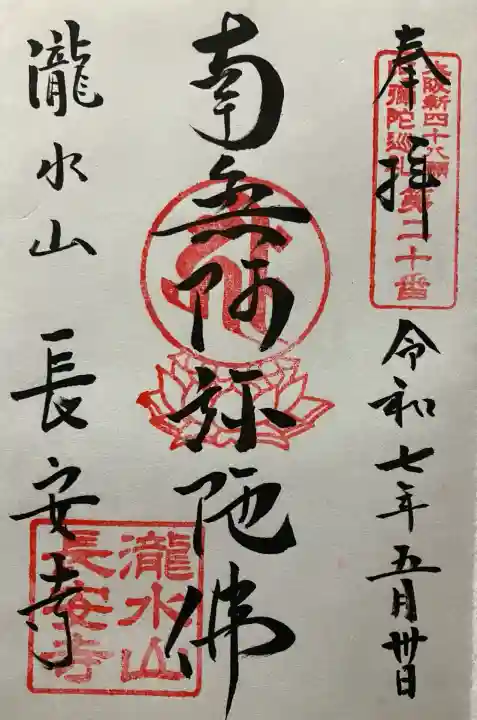 奉拝 令和七年五月卅日
大阪新四十八願
阿彌陀巡礼 第二十番
南無阿弥陀佛
瀧水山 長安寺
瀧水山
長安寺